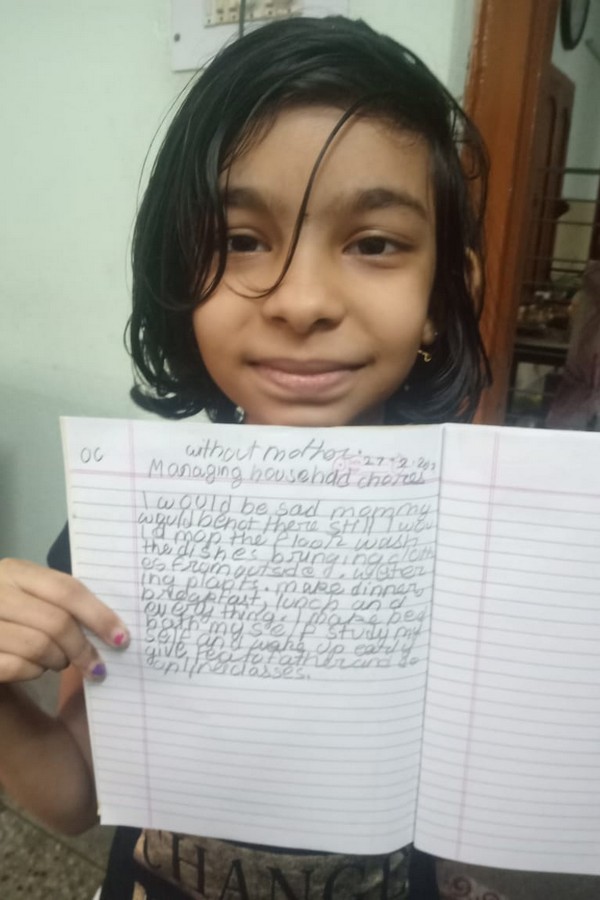 OC
without mother.
27-2-20
Managing househad chores
I would be sad mommy
would be not there still I wou
ld mop the floor wash
the dishes bringing cloth
es from outside, water
ing plants. make dinner
breakfast, lunch and
every thing. I make bed
bath my self study my
self and wake up early
give tea to father and do
online classes.
CHANGE